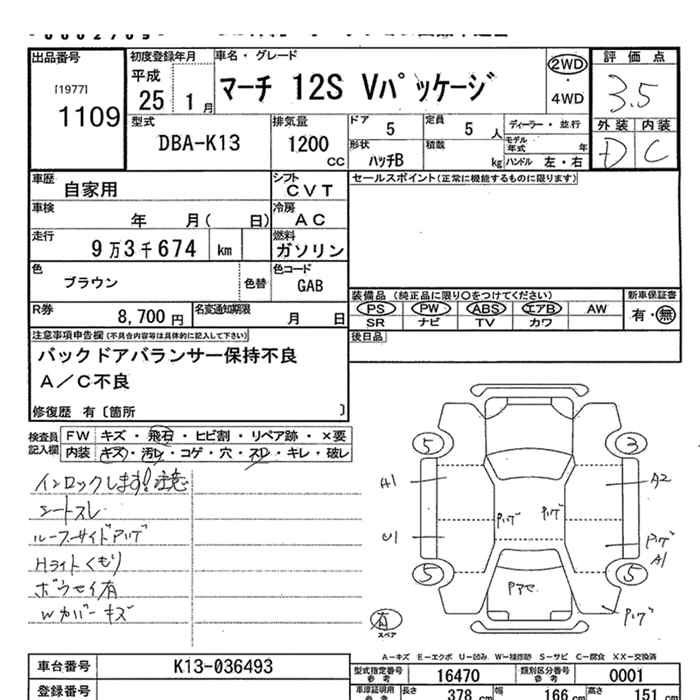 出品番号
[1977]
1109
初度登録年月
平成
25 1月
車名・グレード
マーチ 12S Vパッケージ
2WD
・
4WD
評価点
3.5
外装 内装
D C
型式
DBA-K13
排気量
1200
CC
ドア 5
定員 5 人
形状 ハッチB
積載 kg
ディーラー・並行
モデル年式 年
ハンドル 左・右
車歴 自家用
シフト CVT
車検 年 月( 日)
冷房 AC
走行 9万3千674 km
燃料 ガソリン
色 ブラウン
色替
色コード GAB
R券 8,700円
名変通知期限 月 日
セールスポイント(正常に機能するものに限ります)
装備品(純正品に限り○をつけてください)
新車保証書
PS PW ABS エアB AW
有・無
SR ナビ TV カワ
後日品
注意事項申告欄(不具合内容等は具体的に記入して下さい)
バックドアバランサー保持不良
A/C不良
修復歴 有〔箇所 〕
検査員記入欄
FW キズ・飛石・ヒビ割・リペア跡・×要
内装 キズ・汚レ・コゲ・穴・スレ・キレ・破レ
インロックします!注意
シートスレ
ルーフサイドアゲ
Hライトくもり
ボウセイ有
Wカバーキズ
5 3
A1 A2
U1
5 5
A1
有
スペア
A-キズ E-エクボ U-凹み W-補修跡 S-サビ C-腐食 XX-交換済
車台番号 K13-036493
登録番号
型式指定番号 参考 16470
類別区分番号 参考 0001
車庫証明用 参考
長さ 378 cm
幅 166 cm
高さ 151 cm